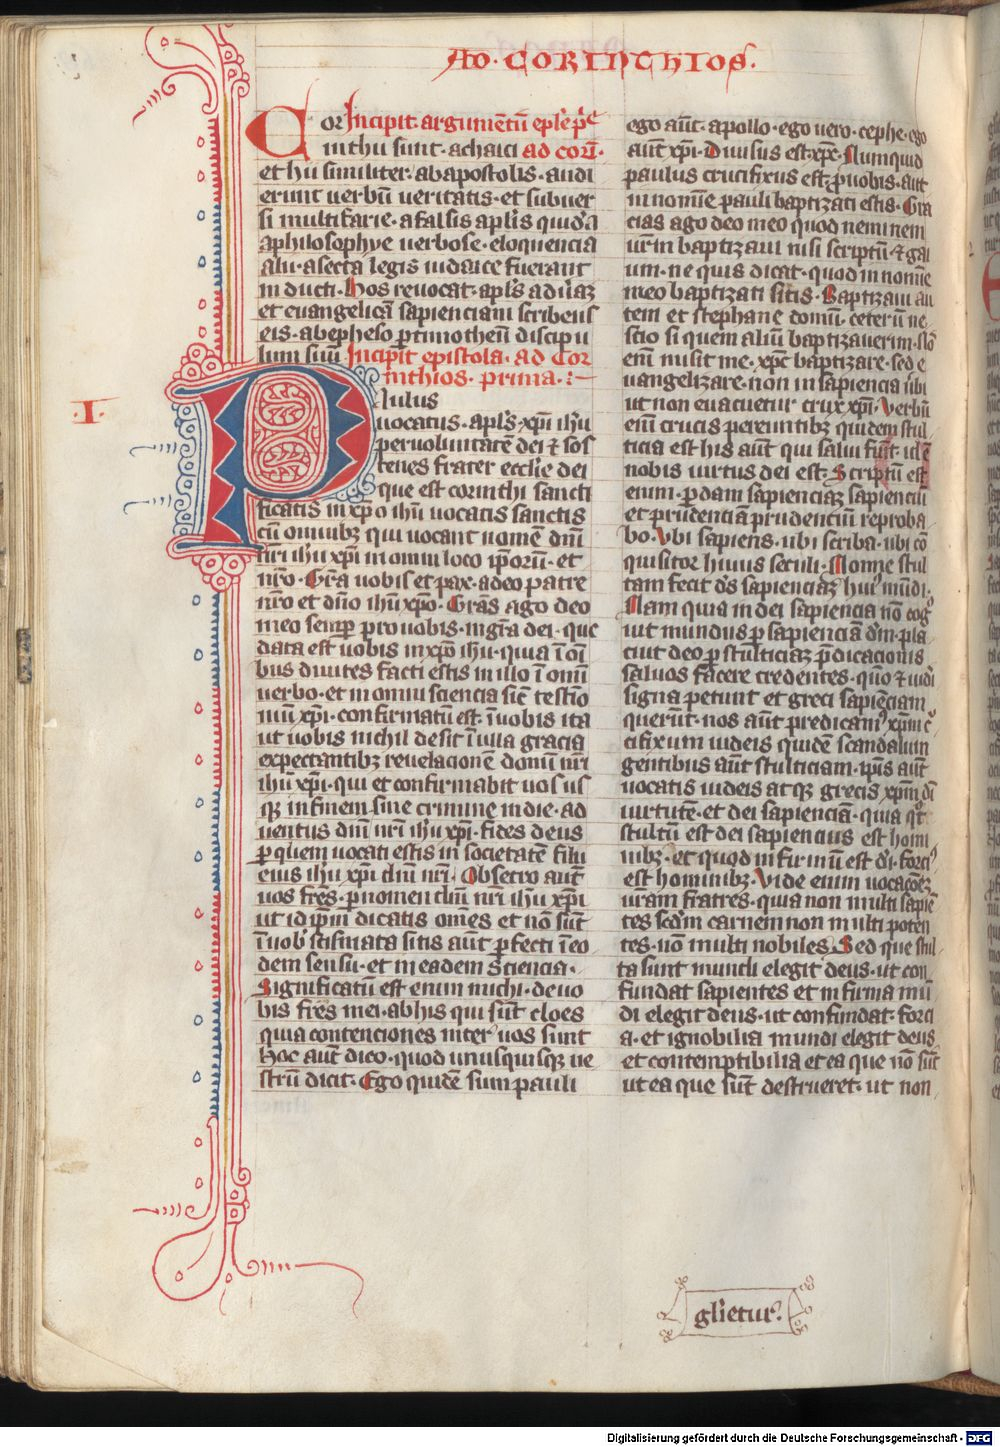 AD · CORINTHIOS ·
Cor Incipit argumētū eplē pᵉ
inthii sunt · achaici ad corī ·
et hii similiter · ab apostolis · audi
erunt uerbū ueritatis · et subuer
si multifarie · a falsis aplis quidā
a philosophye uerbose · eloquencia
alii · a secta legis iudaice fuerant
inducti · Hos reuocat · apls ad uaꝫ
et euangelicā sapienciam scribens
eis · ab epheso ꝑ timotheū discipu
lum suū Incipit epistola · ad Cor
inthios · prima ·:~
·I·
Paulus
uocatus · apls · xp̄i ih'u
per uoluntatē dei ⁊ sos
tenes frater ecclīe dei
que est corinthi sancti
ficatis in xp̄o ihū uocatis sanctis
cū omnibꝫ qui uocant nomē dnī
nr̄i ih'u xp̄i in omni loco ip̄orū · et
nr̄o · Gr̄a uobis et pax · a deo patre
nr̄o et dn̄o ihū xp̄o · Gr̄as ago deo
meo semꝑ pro uobis · in gr̄a dei · que
data est uobis in xp̄o ih'u · quia ī oī
bus diuites facti estis in illo ī omī
uerbo · et in omni sciencia sic̄ testīo
niū xp̄i · confirmatū est · ī uobis ita
ut uobis nichil desit ī ulla gracia
expectantibꝫ reuelacionē domī nr̄i
ihū xp̄i · qui et confirmabit uos us
qꝫ in finem sine crimine in die · ad
uentus dnī nr̄i ih'u xp̄i · fides deus
ꝑ quem uocati estis in societatē filii
eius ih'u xp̄i dnī nr̄i · Obsecro aut̄
uos fr̄es · ꝑ nomen dnī nr̄i ih'u xp̄i
ut id ip̄m dicatis om̄es et nō sūt
ī uob' scismata sitis aūt ꝑfecti ī eo
dem sensu · et in eadem sciencia ·
Significatū est enim michi · de uo
bis fr̄es mei · ab his qui sūt cloes
quia contenciones inter uos sunt
Hoc aūt dico · quod unusquisqꝫ ue
strū dicit · Ego quidē sum pauli
ego aūt · apollo · ego uero · cephe · ego
aūt xp̄i · Diuisus est · xp̄c · Numquid
paulus crucifixus est ꝓ uobis · aut
in nomīe pauli baptizati estis · Gra
cias ago deo meo quod neminem
ur̄m baptizaui nisi scriptū ⁊ gai
um · ne quis dicat · quod in nomīe
meo baptizati sitis · Baptizaui au
tem et stephane domū · ceterū ne
scio si quem aliū baptizauerim · Nō
enī misit me · xp̄c baptizare · sed e
uangelizare · non in sapiencia ūbi
ut non euacuetur crux xp̄i · Verbū
enī crucis pereuntibꝫ quidem stul
ticia est his aūt qui salui fiūt · id ē
nobis uirtus dei est · Scriptū est
enim · ꝑdam sapienciaꝫ sapienciū
et prudenciā prudenciū reproba
bo · Vbi sapiens · ubi scriba · ubi cō
quisitor huius seculi · Nonne stul
tam fecit dꝰs sapienciaꝫ huiꝰ mūdi ·
Nam quia in dei sapiencia nō cog̊
uit mundus ꝑ sapienciā dm̄ · pla
cuit deo ꝑ stulticiaꝫ p̄dicacionis
saluos facere credentes · qm̄o ⁊ iudei
signa petunt et greci sapienciam
querūt · nos aūt predicamꝰ xp̄m cꝰ
cifixum iudeis quidē scandalum
gentibus aūt stulticiam · ip̄is aūt
uocatis iudeis atqꝫ grecis xp̄m dī
uirtutē · et dei sapienciā · quia q̊
stultū est dei sapiencius est homi
nibꝫ · et quod infirmū est dī · forciꝰ
est hominibꝫ · Vide enim uocacōeꝫ
ur̄am fratres · quia non multi sapiē
tes scd̄m carnem non multi poten
tes · nō multi nobiles · Sed que stul
ta sunt mundi elegit deus · ut con
fundat sapientes et infirma mū
di elegit deus · ut confundat · forci
a · et ignobilia mundi elegit deus
et contemptibilia et ea que nō sūt
ut ea que sūt destrueret · ut non
gl'ietur ·
Digitalisierung gefördert durch die Deutsche Forschungsgemeinschaft - DFG